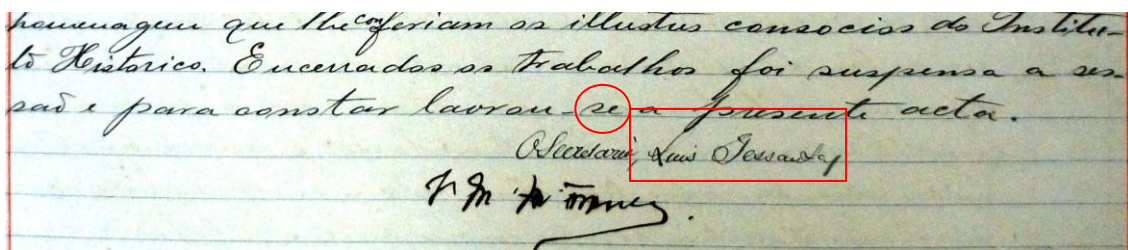 homenagem que lhe conferiam os illustres consocios do Institu-
to Historico. Encerrados os trabalhos foi suspensa a ses-
saõ e para constar lavrou-se a presente acta.
O Secretario, Luis